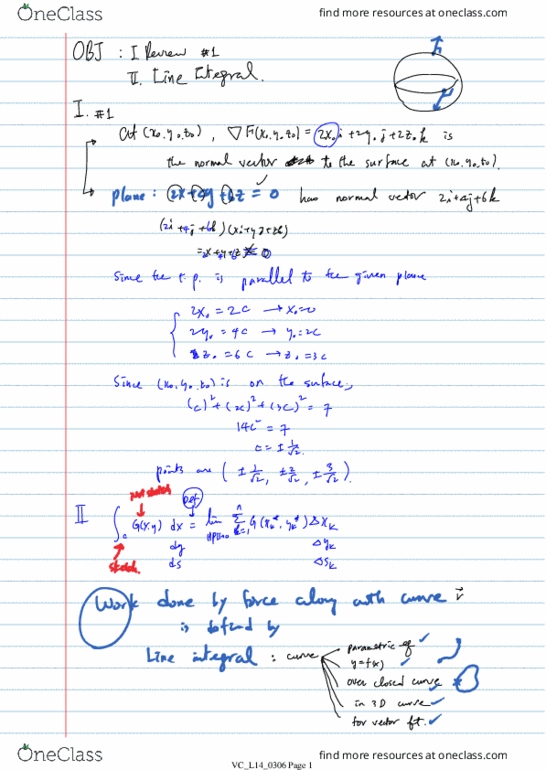 OneClass
find more resources at oneclass.com
OBJ : I Review #1
II. Line Integral.
I. #1
At (x₀,y₀,z₀), ∇F(x₀,y₀,z₀) = 2x₀i + 2y₀j + 2z₀k is
the normal vector to the surface at (x₀,y₀,z₀).
plane : 2x+4y+6z = 0 has normal vector 2i+4j+6k
(2i+4j+6k)(xi+yj+zk)
= 2x+4y+6z = 0
Since the t.p. is parallel to the given plane
2x₀ = 2c → x₀=c
2y₀ = 4c → y₀=2c
2z₀ = 6c → z₀=3c
Since (x₀,y₀,z₀) is on the surface,
(c)² + (2c)² + (3c)² = 7
14c² = 7
c = ± 1/√2
points are (± 1/√2, ± 2/√2, ± 3/√2).
not sketch
def
II ∫c G(x,y) dx = lim Σ G(xₖ*, yₖ*) Δxₖ
dy Δyₖ
sketch. ds Δsₖ
Work done by force along with curve r
is defined by
Line integral : curve
parametric eq ✓
y=f(x) ✓
over closed curve
in 3D curve ✓
for vector ft. ✓
OneClass
VC_L14_0306 Page 1
find more resources at oneclass.com